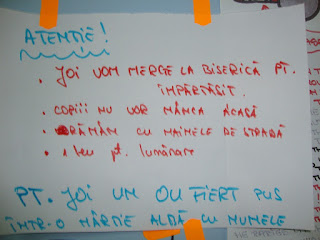 ATENȚIE!
• JOI VOM MERGE LA BISERICĂ PT.
ÎMPĂRTĂȘIT.
• COPIII NU VOR MÂNCA ACASĂ
• RĂMÂN CU HAINELE DE STRADĂ
• 1 leu pt. lumânare
PT. JOI UN OU FIERT PUS
ÎNTR-O HÂRTIE ALBĂ CU NUMELE